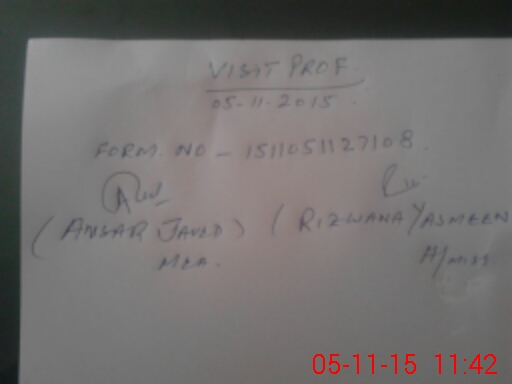 VISIT PROF
05-11-2015.
FORM. NO - 1511051127108.
(ANSAR JAVED) (RIZWANA YASMEEN
MCA.
05-11-15 11:42